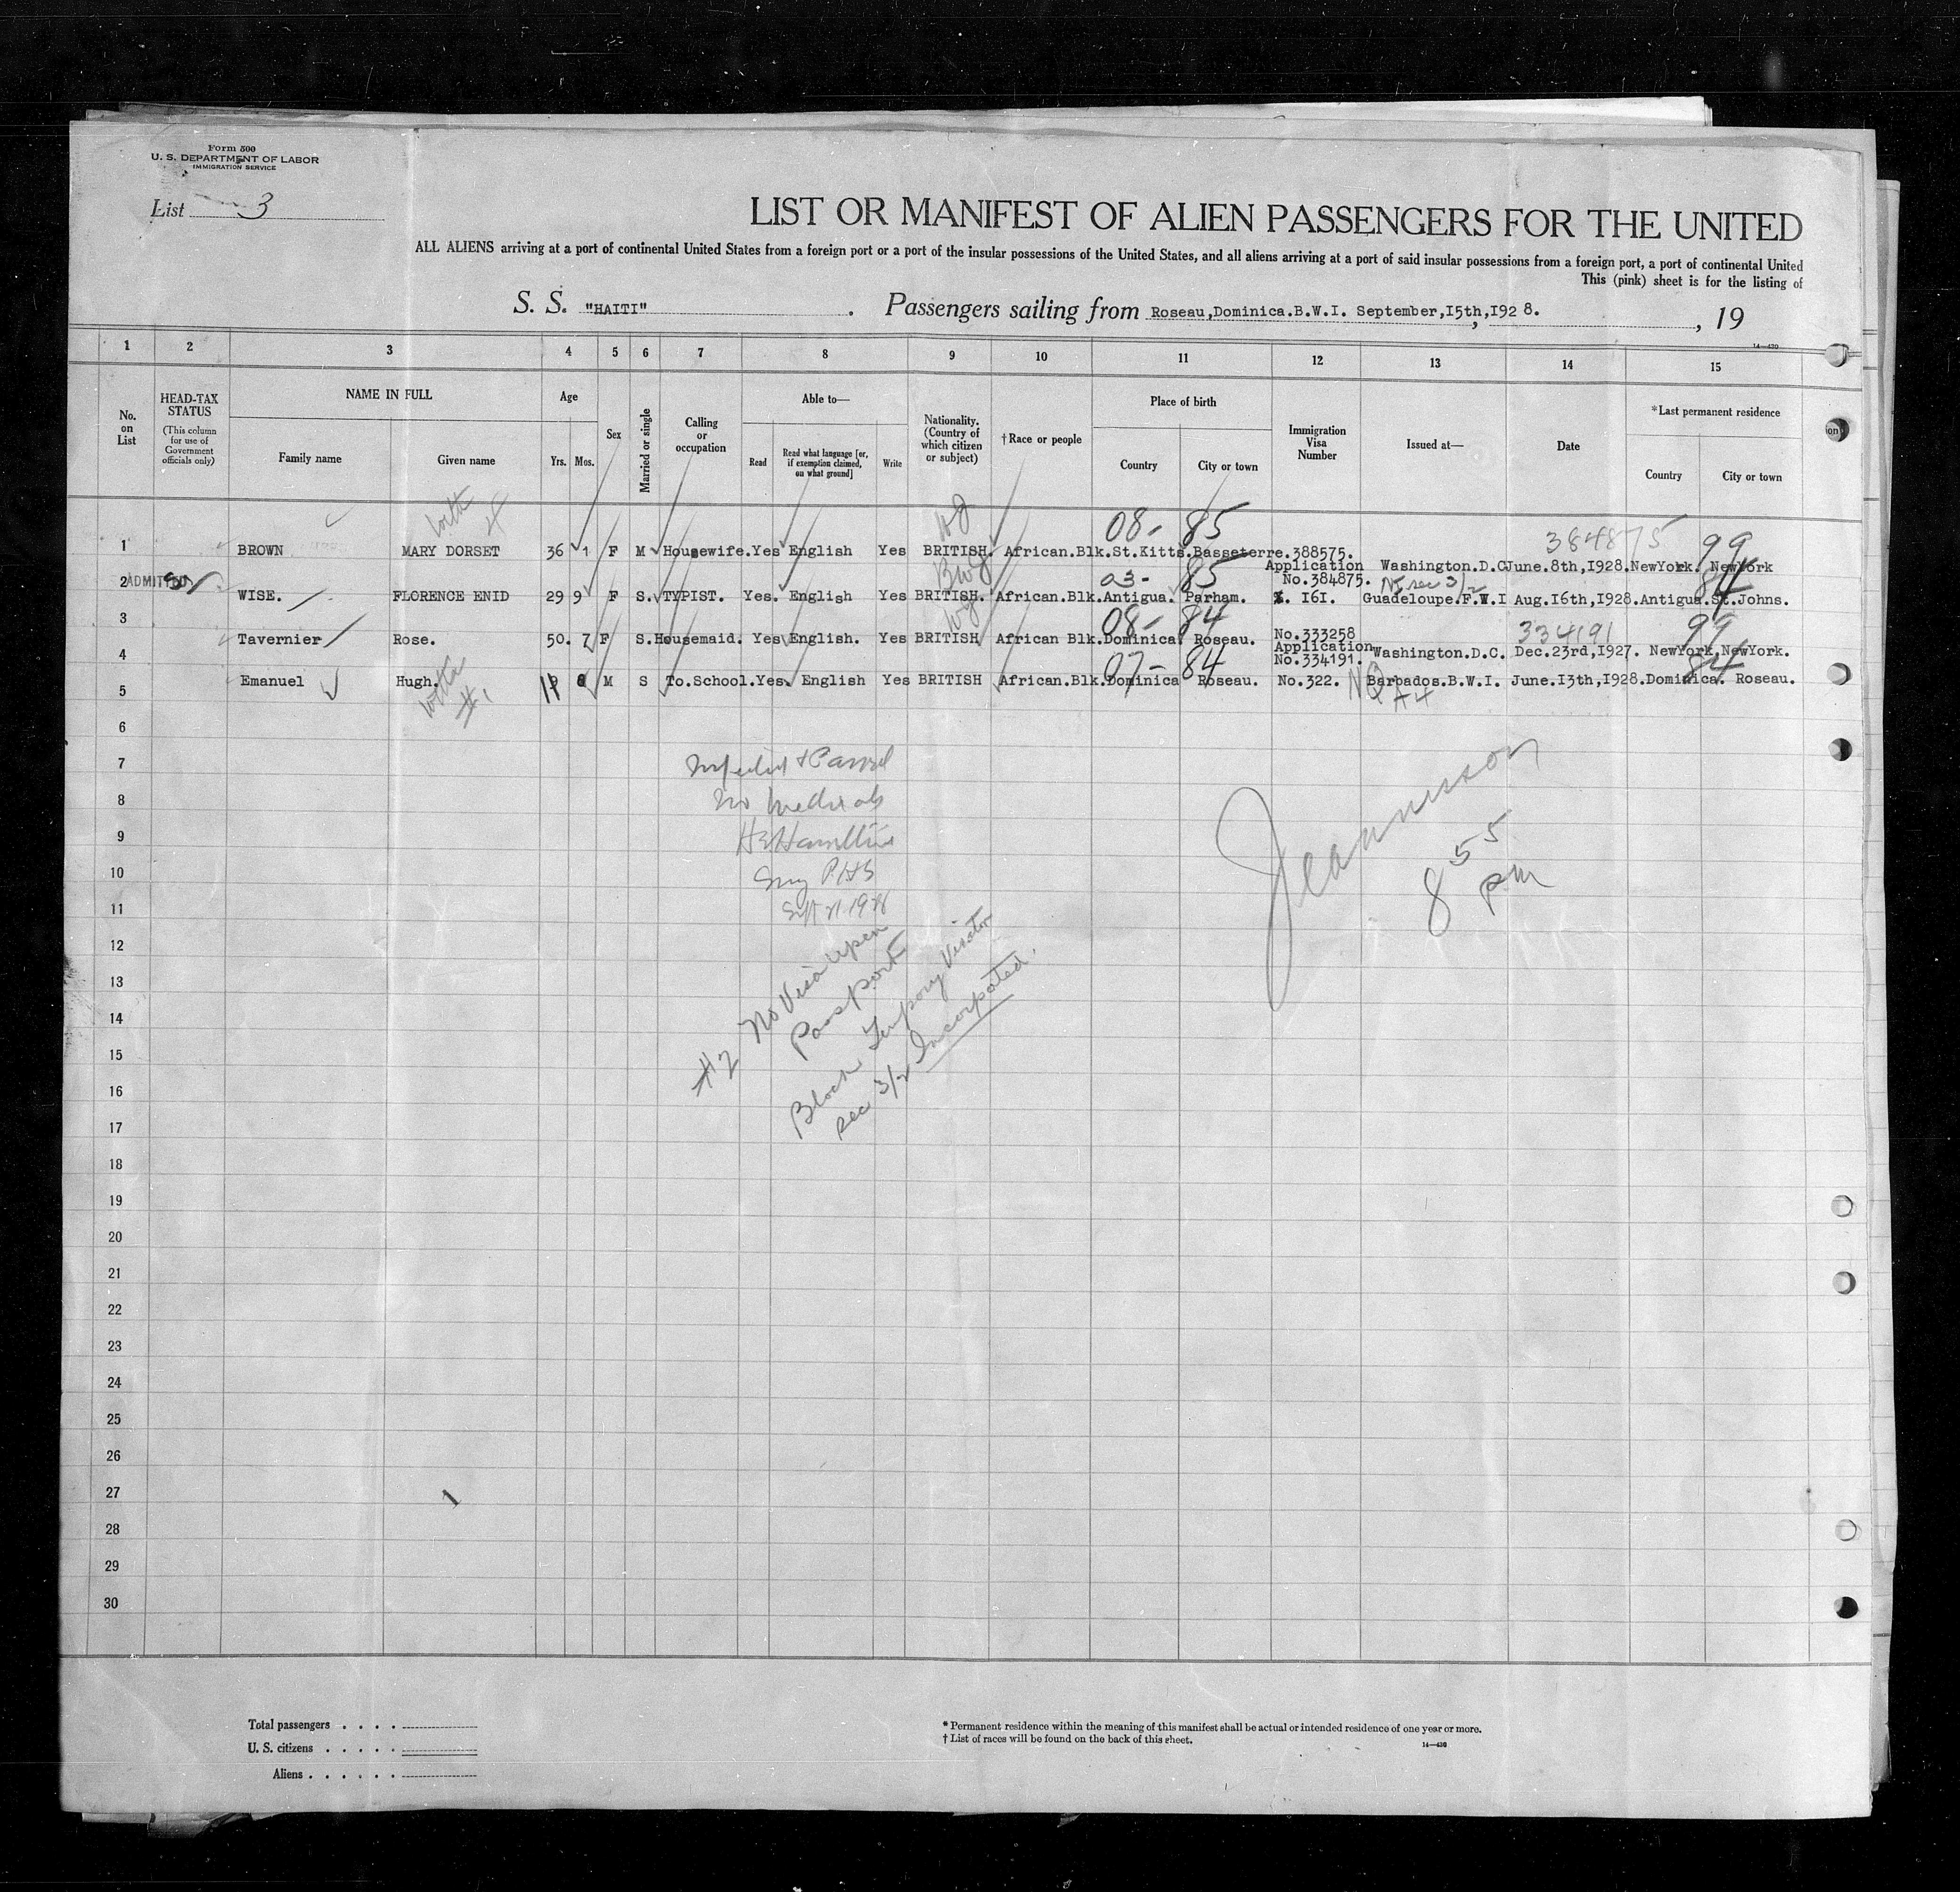 Form 500
U. S. DEPARTMENT OF LABOR
IMMIGRATION SERVICE
List 3
LIST OR MANIFEST OF ALIEN PASSENGERS FOR THE UNITED
ALL ALIENS arriving at a port of continental United States from a foreign port or a port of the insular possessions of the United States, and all aliens arriving at a port of said insular possessions from a foreign port, a port of continental United
This (pink) sheet is for the listing of
S. S. "HAITI" . Passengers sailing from Roseau,Dominica.B.W.I. September,15th,1928. , , 19
14—430
1 2 3 4 5 6 7 8 9 10 11 12 13 14 15
No. on List
HEAD-TAX STATUS (This column for use of Government officials only)
NAME IN FULL
Family name Given name
Age
Yrs. Mos.
Sex
Married or single
Calling or occupation
Able to—
Read Read what language [or, if exemption claimed, on what ground] Write
Nationality. (Country of which citizen or subject)
† Race or people
Place of birth
Country City or town
Immigration Visa Number
Issued at—
Date
* Last permanent residence
Country City or town
with 4
08- 85 384875 99
1 BROWN MARY DORSET 36 1 F M Housewife.Yes English Yes BRITISH. African.Blk.St.Kitts.Basseterre.388575.
Application Washington.D.C June.8th,1928.NewYork. NewYork
No.384875.
03- 85 NQ sec 3/2 84
2 ADMITTED WISE. FLORENCE ENID 29 9 F S. TYPIST. Yes. English Yes BRITISH. African.Blk.Antigua. Parham. 161. Guadeloupe.F.W.I Aug.16th,1928.Antigua.St.Johns.
08- 84 334191 99
3 Tavernier Rose. 50. 7 F S.Housemaid. Yes English. Yes BRITISH African Blk.Dominica Roseau. No.333258
Application Washington.D.C. Dec.23rd,1927. NewYork,NewYork.
4 No.334191.
07- 84 84
Emanuel Hugh. 11 M S To.School.Yes. English Yes BRITISH African.Blk.Dominica Roseau. No.322. Barbados.B.W.I. June.13th,1928.Dominica. Roseau.
5
with #1
NQ A4
6
7
8
9
10
11
12
13
14
15
16
17
18
19
20
21
22
23
24
25
26
27
28
29
30
& Passed
No medicals
Surg PHS
Sept 21-1928
8 55 pm
#2 No Visa upon
Passport
Visitor
sec 3/2 Incorpated.
Total passengers
U. S. citizens
Aliens
* Permanent residence within the meaning of this manifest shall be actual or intended residence of one year or more.
† List of races will be found on the back of this sheet.
14—430